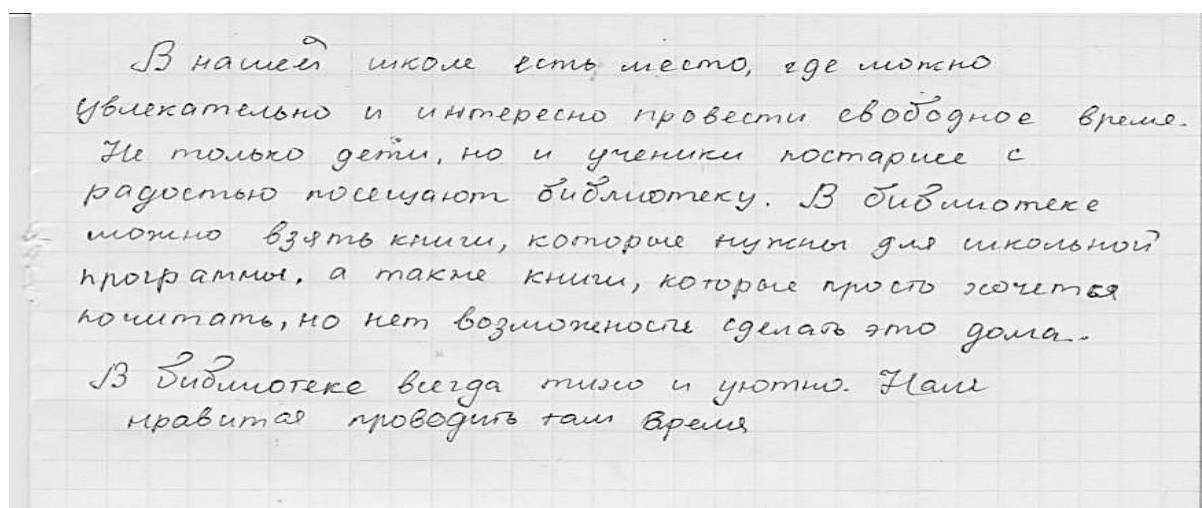 В нашей школе есть место, где можно
увлекательно и интересно провести свободное время.
Не только дети, но и ученики постарше с
радостью посещают библиотеку. В библиотеке
можно взять книги, которые нужны для школьной
программы, а также книги, которые просто хочется
почитать, но нет возможности сделать это дома.
В библиотеке всегда тихо и уютно. Нам
нравится проводить там время